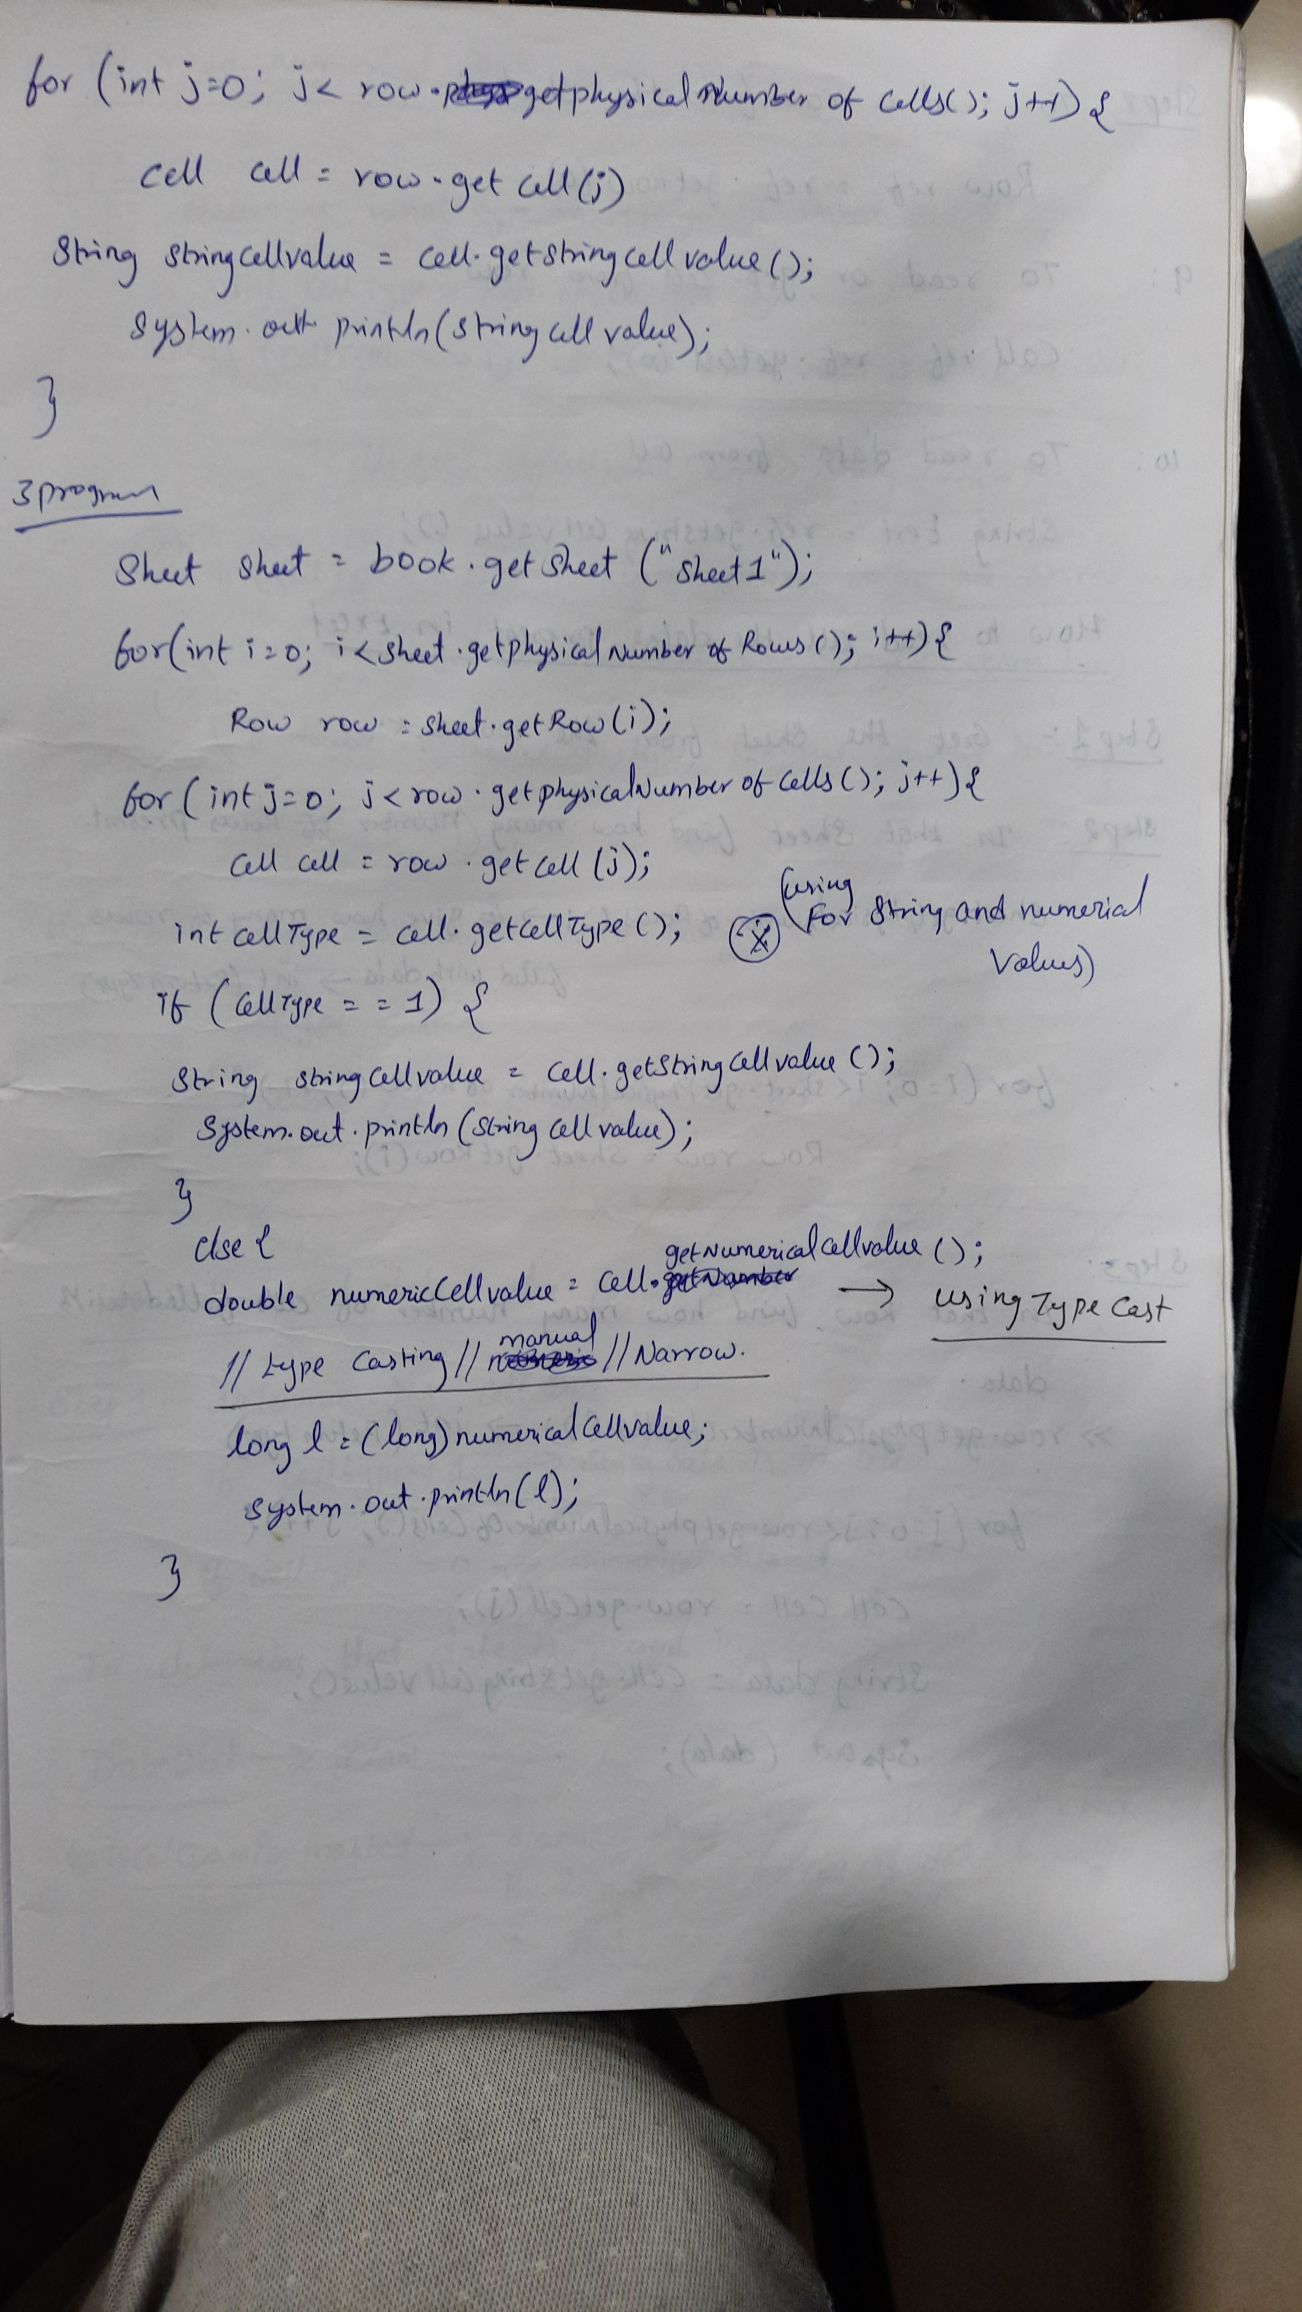 for (int j=0; j< row.getphysicalNumber of Cells(); j++) {
Cell cell = row.getcell(j)
String stringcellvalue = cell.getstringcellvalue();
System.out println(stringcellvalue);
}
3program
Sheet sheet = book.getsheet ("sheet1");
for(int i=0; i<sheet.getphysicalNumber of Rows(); i++){
Row row = sheet.getRow(i);
for (int j=0; j<row.getphysicalNumber of Cells(); j++){
Cell cell = row.getcell (j);
int cellType = cell.getcellType (); (using For String and numerical
values)
if (CellType = = 1) {
String stringcellvalue = cell.getStringcellvalue ();
System.out.println (String cell value);
}
else {
getNumericalcellvalue ();
double numericCellvalue = cell.getNumber → using Type Cast
manual
// type Casting // // Narrow.
long l = (long) numericalCellvalue;
System.out.println(l);
}